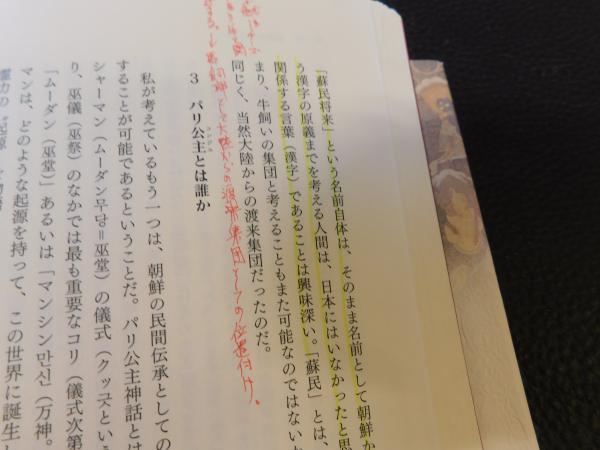 「蘇民将来」という名前自体は、そのまま名前として朝鮮か
う漢字の原義までを考える人間は、日本にはいなかったと思
関係する言葉（漢字）であることは興味深い。「蘇民」とは、
まり、牛飼いの集団と考えることもまた可能なのではないか
同じく、当然大陸からの渡来集団だったのだ。
として大陸からの渡来集団としての位置付け。
3 パリ公主とは誰か
私が考えているもう一つは、朝鮮の民間伝承としての
することが可能であるということだ。パリ公主神話とは
シャーマン（ムーダン무당＝巫堂）の儀式（クッ굿という
り、巫儀（巫祭）のなかでは最も重要なコリ（儀式次第
「ムーダン（巫堂）」あるいは「マンシン만신（万神。
マンは、どのような起源を持って、この世界に誕生し
霊力の